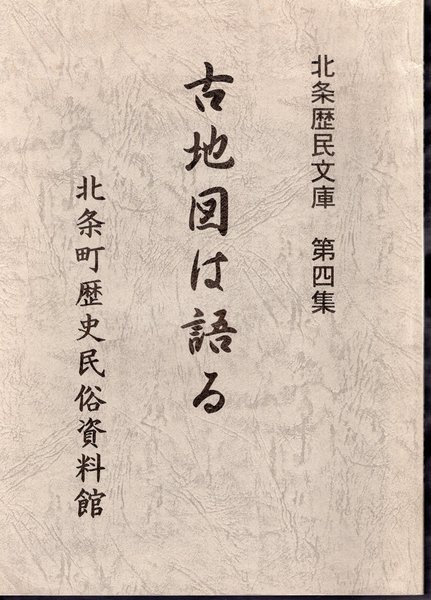 北条歴民文庫　第四集
古地図は語る
北条町歴史民俗資料館